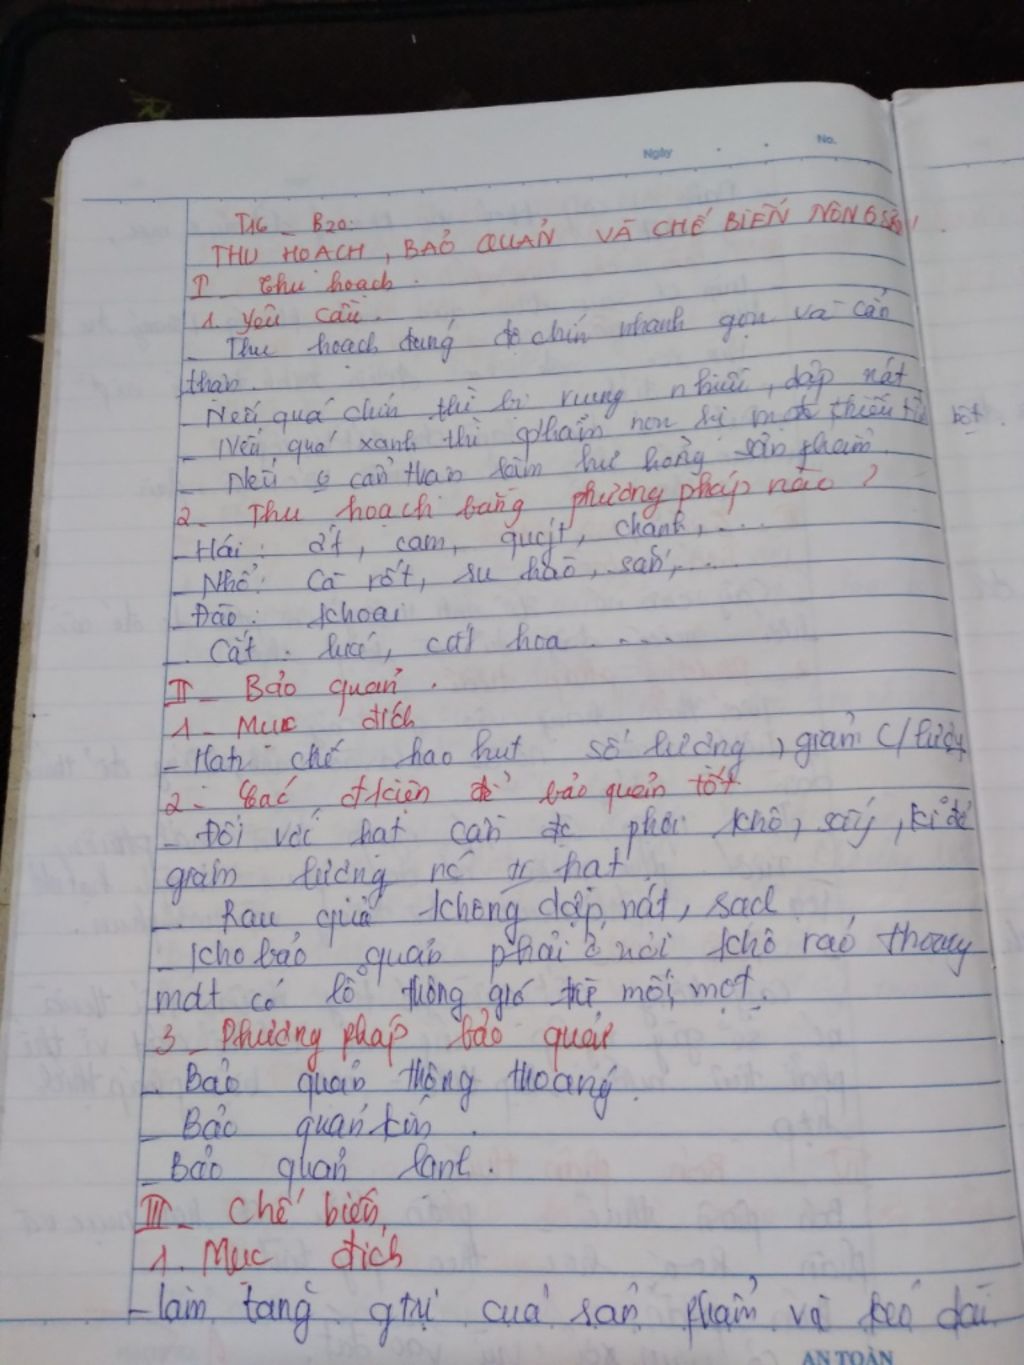 Ngày No.
T16 _ B20:
THU HOẠCH, BẢO QUẢN VÀ CHẾ BIẾN NÔNG SẢN
I _ Thu hoạch.
1. Yêu cầu.
- Thu hoạch đúng độ chín nhanh gọn và cẩn
thận.
- Nếu quá chín thì bị rụng nhiều, dập nát
- Nếu quá xanh thì phẩm non bị mất thiếu tinh bột.
- Nếu o cẩn thận làm hư hỏng sản phẩm
2 - Thu hoạch bằng phương pháp nào?
- Hái: ớt, cam, quýt, chanh, ....
- Nhổ: Cà rốt, su hào, sắn, ....
- Đào: khoai
- Cắt: lúa, cắt hoa ....
II _ Bảo quản.
1 - Mục đích
- Hạn chế hao hụt số lượng, giảm c/lượng
2 - Các đkiện để bảo quản tốt
- Đối với hạt cần đc phơi khô, sấy, kĩ để
giảm lượng nc hạt
- Rau quả không dập nát, sạch
- Kho bảo quản phải ở nơi khô ráo thoáng
mát có lỗ thông gió trừ mối, mọt.
3 - Phương pháp bảo quản
- Bảo quản thông thoáng.
- Bảo quản kín.
- Bảo quản lạnh.
III - Chế biến
1. Mục đích
- làm tăng gtrị của sản phẩm và kéo dài
AN TOÀN